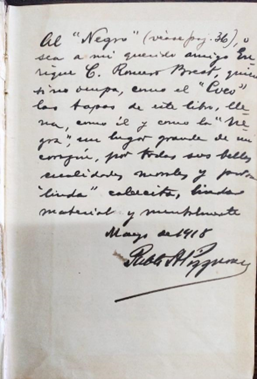 Al "Negro" (véase pág. 36), o
sea a mi querido amigo En-
rique C. Romero Brest, quien
si no ocupa, como el "Coco"
las tapas de este libro, lle-
na, como él y como la "Ne-
gra", un lugar grande de mi
corazón, por todas sus bellas
cualidades morales y por su
"linda" cabecita, linda
material y mentalmente
Mayo de 1918
Pablo A. Pizzurno